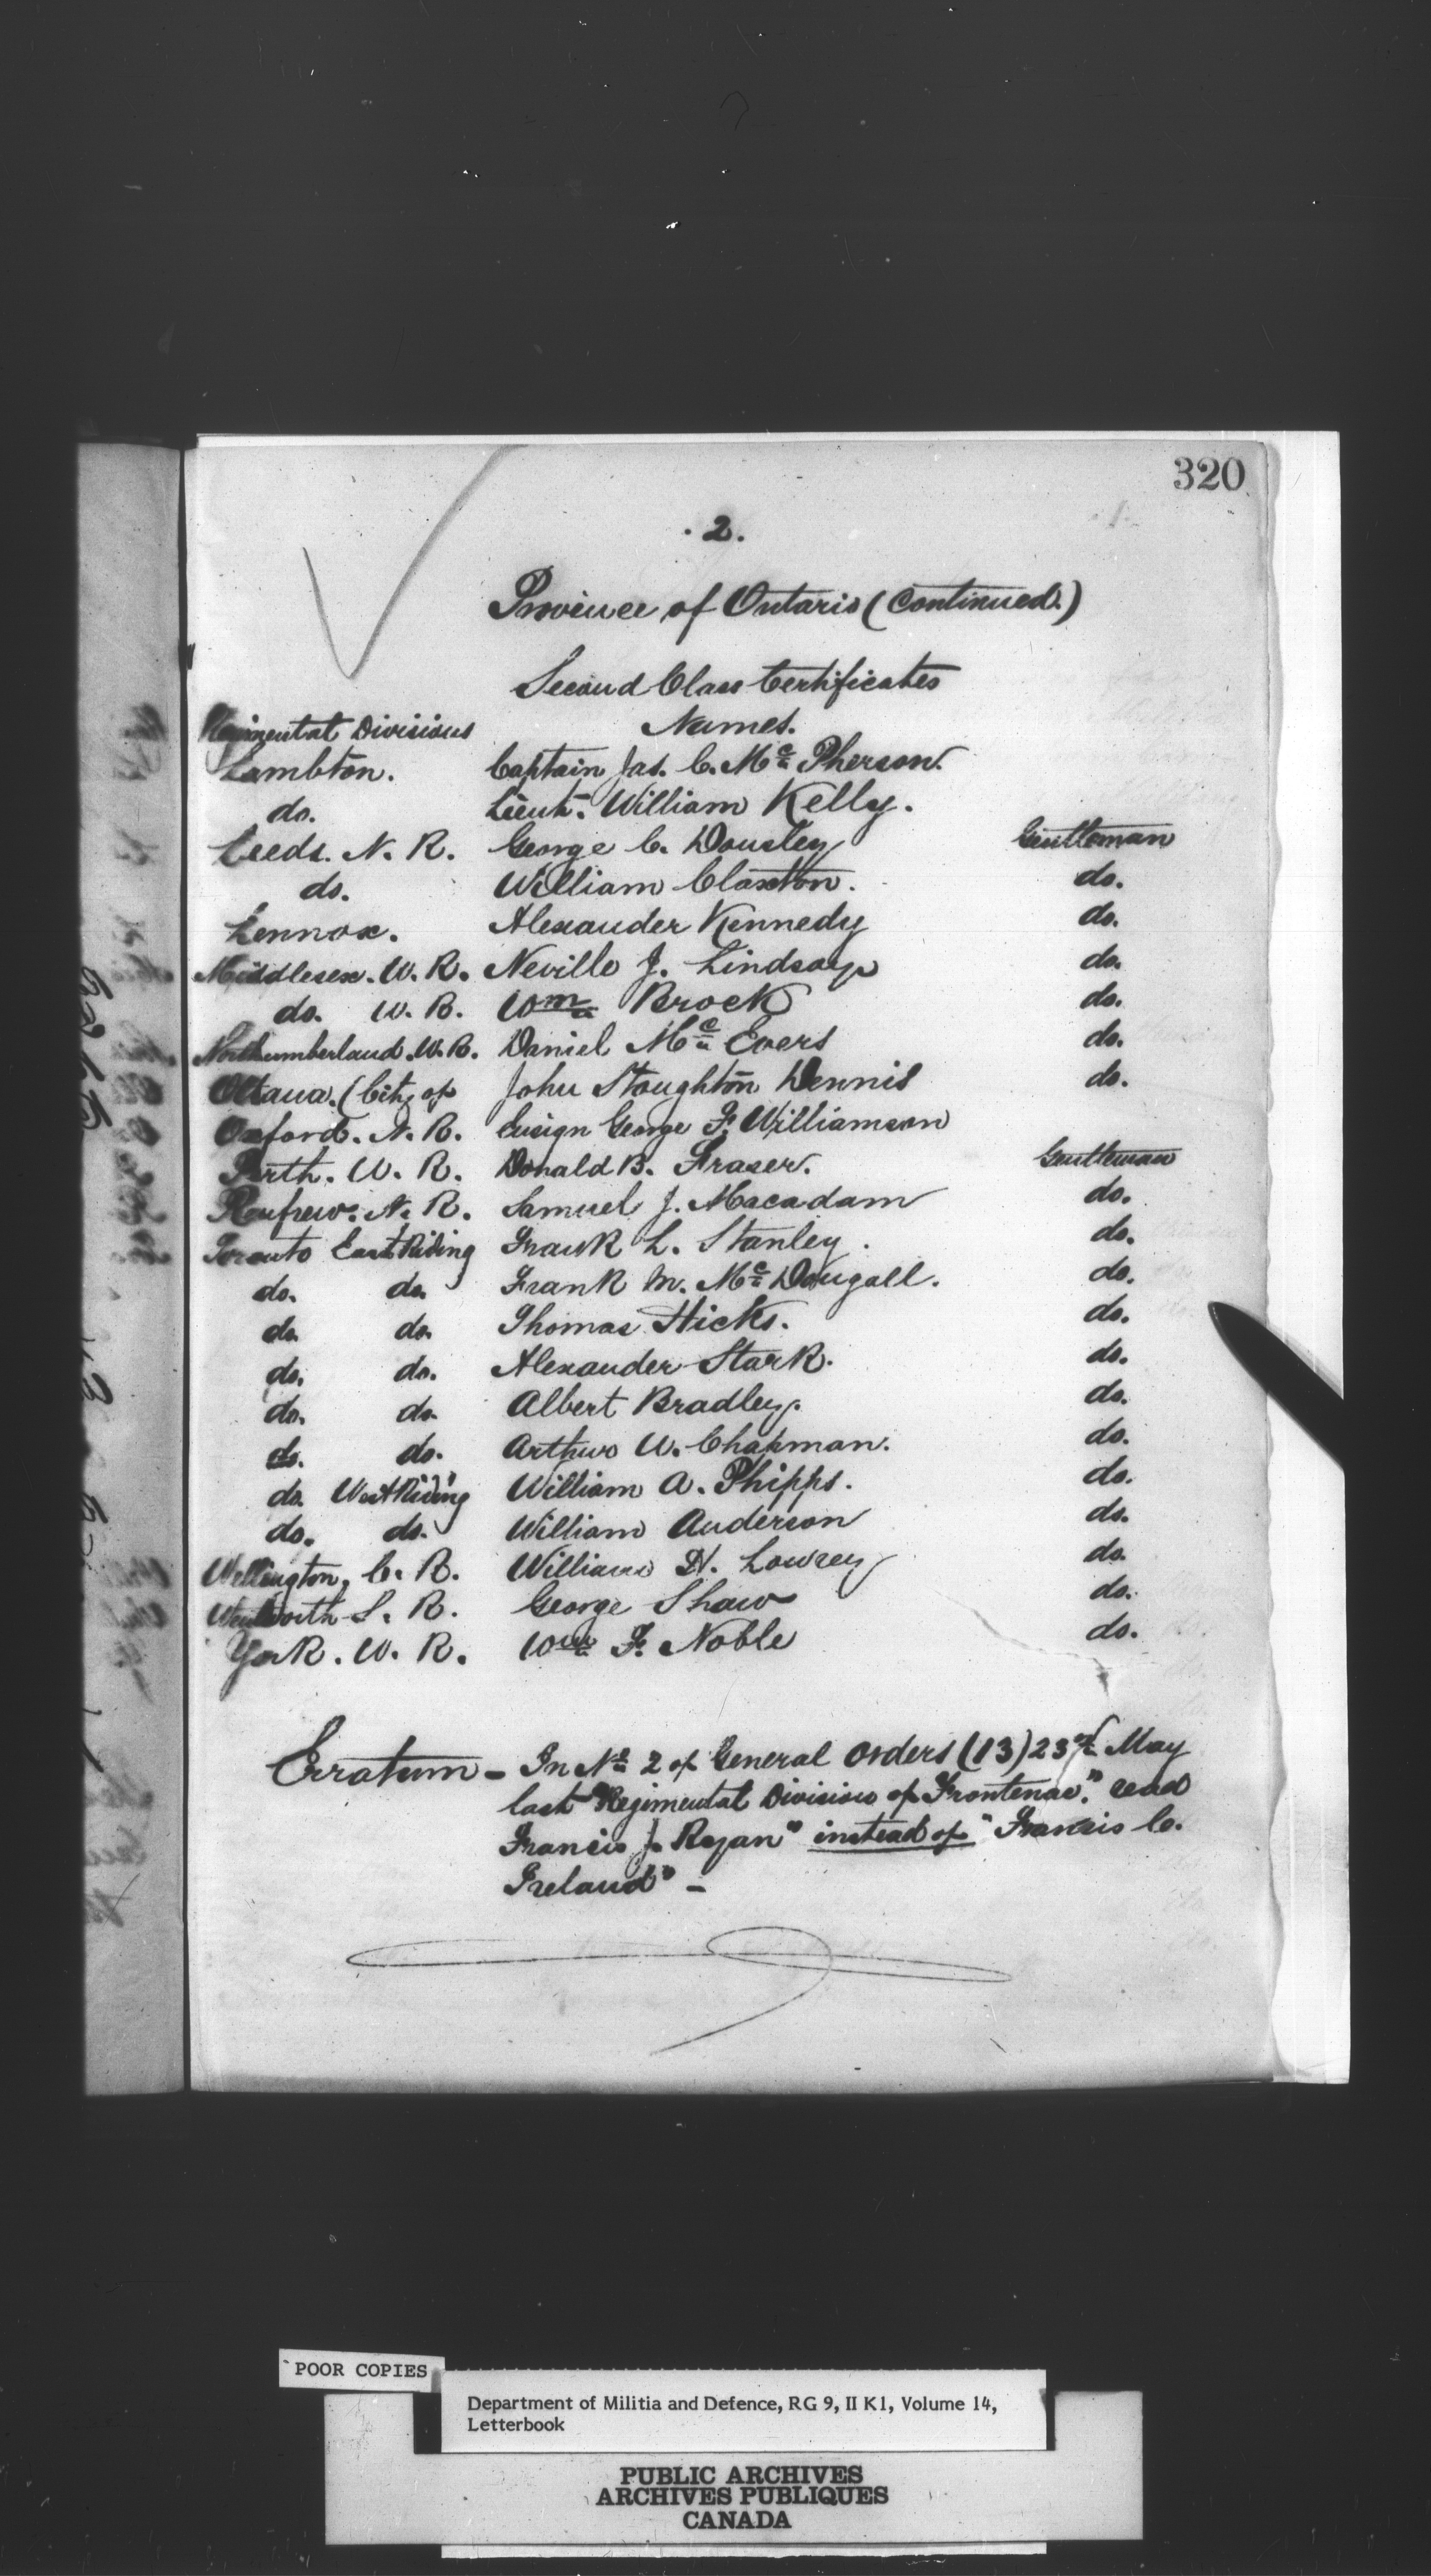 320
. 2.
Province of Ontario (Continued.)
Second Class Certificates
Regimental Divisions Names.
Lambton. Captain Jas. C. Mc Pherson.
do. Lieut. William Kelly.
Leeds. N. R. George C. Dousley Gentleman
do. William Claxton. do.
Lennox. Alexander Kennedy do.
Middlesex. W. R. Neville J. Lindsay do.
do. W. R. Wm Brock do.
Northumberland. W. R. Daniel Mc Evers do.
Ottawa. (City of John Stoughton Dennis do.
Oxford. N. R. Ensign George F. Williamson
Perth. W. R. Donald B. Fraser. Gentleman
Renfrew. N. R. Samuel J. Macadam do.
Toronto East Riding Frank L. Stanley. do.
do. do. Frank M. Mc Dougall. do.
do. do. Thomas Hicks. do.
do. do. Alexander Stark. do.
do. do. Albert Bradley. do.
do. do. Arthur W. Chapman. do.
do. West Riding William A. Phipps. do.
do. do. William Anderson do.
Wellington. C. R. William H. Lowrey do.
Wentworth S. R. George Shaw do.
York. W. R. Wm F. Noble do.
Erratum - In No 2 of General Orders (13) 23rd May
last "Regimental Division of Frontenac." read
Francis J. Ryan" instead of "Francis C.
Ireland" -
POOR COPIES
Department of Militia and Defence, RG 9, II K1, Volume 14,
Letterbook
PUBLIC ARCHIVES
ARCHIVES PUBLIQUES
CANADA